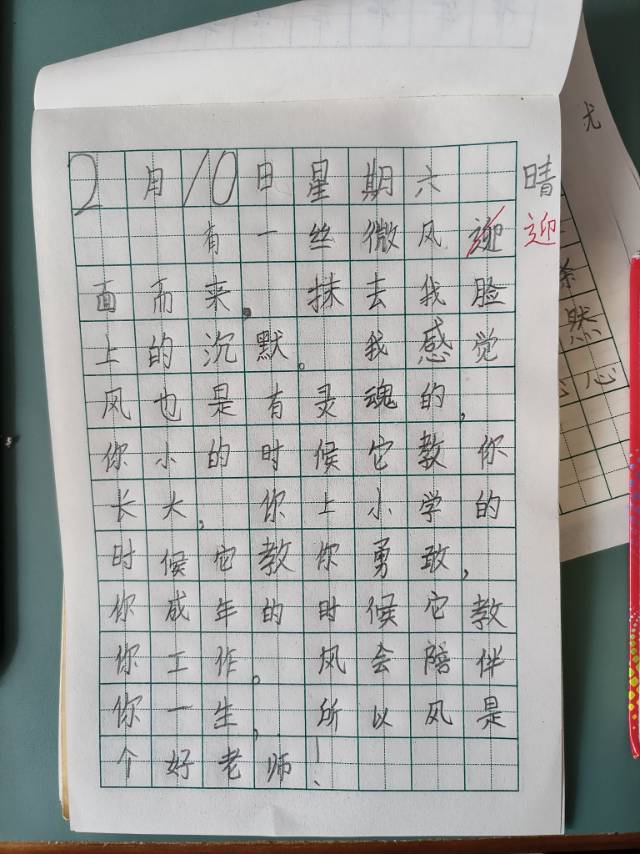 2月10日星期六 晴
有一丝微风迎 迎
面而来,抹去我脸
上的沉默。我感觉
风也是有灵魂的,
你小的时候它教你
长大,你上小学的
时候它教你勇敢,
你成年的时候它教
你工作。风会陪伴
你一生,所以风是
个好老师!
尤
然
心